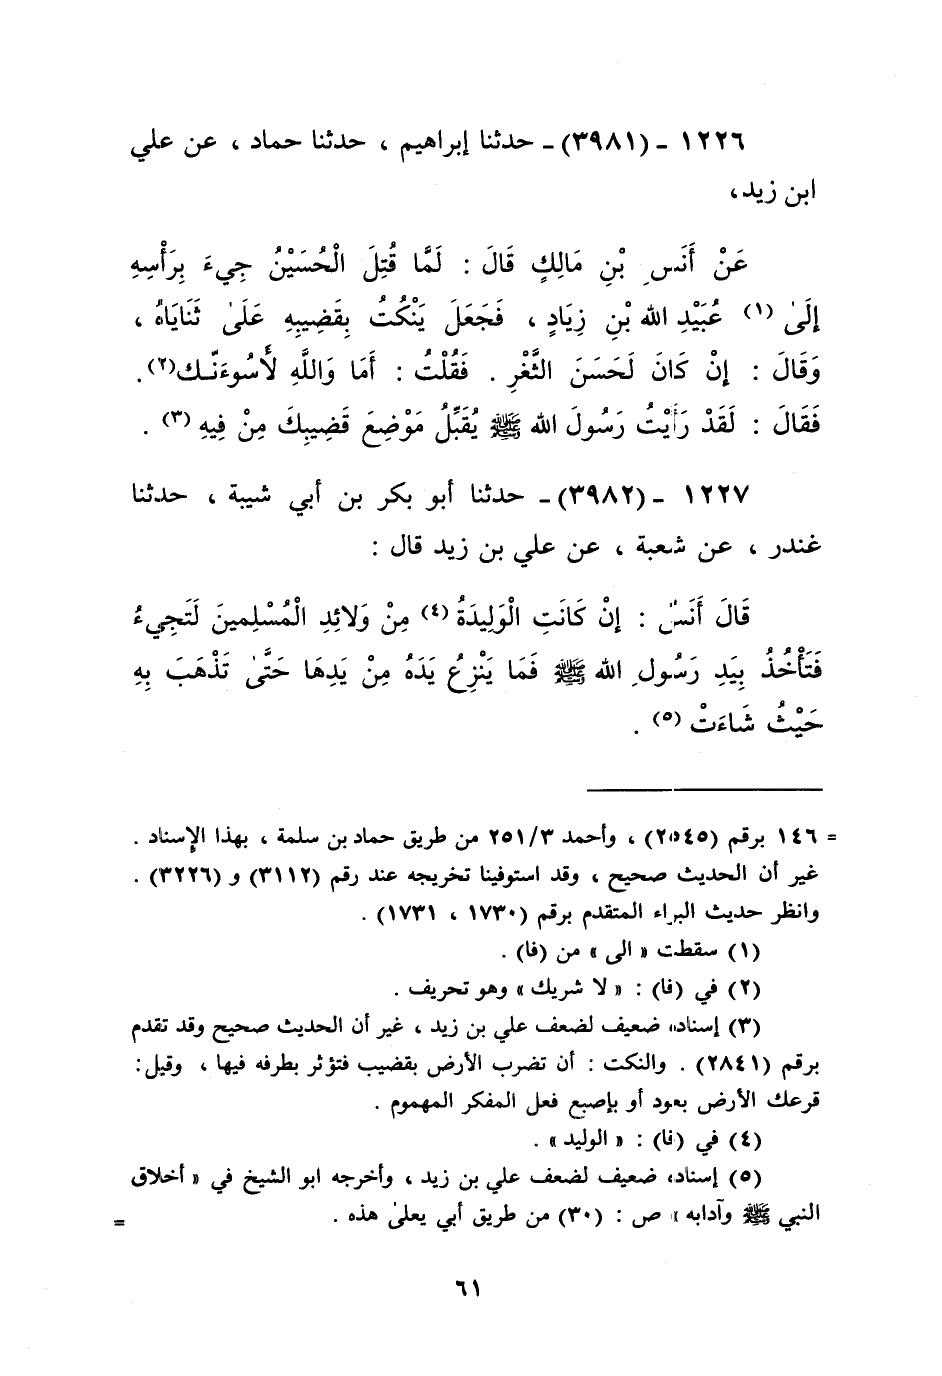 ١٢٢٦ - (٣٩٨١) - حدثنا إبراهيم ، حدثنا حماد ، عن علي
ابن زيد،
عَنْ أَنَسِ بْنِ مَالِكٍ قَالَ : لَمَّا قُتِلَ الْحُسَيْنُ جِيءَ بِرَأْسِهِ
إِلَىٰ (١) عُبَيْدِ الله بْنِ زِيَادٍ ، فَجَعَلَ يَنْكُتُ بِقَضِيبِهِ عَلَىٰ ثَنَايَاهُ ،
وَقَالَ : إِنْ كَانَ لَحَسَنَ الثَّغْرِ . فَقُلْتُ : أَمَا وَاللَّهِ لَأَسُوءَنَّـكَ(٢).
فَقَالَ : لَقَدْ رَأَيْتُ رَسُولَ الله ﷺ يُقَبِّلُ مَوْضِعَ قَضِيبِكَ مِنْ فِيهِ (٣) .
١٢٢٧ - (٣٩٨٢) - حدثنا أبو بكر بن أبي شيبة ، حدثنا
غندر ، عن شعبة ، عن علي بن زيد قال :
قَالَ أَنَسٌ : إِنْ كَانَتِ الْوَلِيدَةُ (٤) مِنْ وَلائِدِ الْمُسْلِمينَ لَتَجِيءُ
فَتَأْخُذُ بِيَدِ رَسُولِ الله ﷺ فَمَا يَنْزِعُ يَدَهُ مِنْ يَدِهَا حَتَّىٰ تَذْهَبَ بِهِ
حَيْثُ شَاءَتْ (٥) .
= ١٤٦ برقم (٢٥٤٥) ، وأحمد ٢٥١/٣ من طريق حماد بن سلمة ، بهذا الإسناد .
غير أن الحديث صحيح ، وقد استوفينا تخريجه عند رقم (٣١١٢) و (٣٢٢٦) .
وانظر حديث البراء المتقدم برقم (١٧٣٠ ، ١٧٣١) .
(١) سقطت « الى » من (فا) .
(٢) في (فا) : « لا شريك » وهو تحريف .
(٣) إسناده ضعيف لضعف علي بن زيد ، غير أن الحديث صحيح وقد تقدم
برقم (٢٨٤١) . والنكت : أن تضرب الأرض بقضيب فتؤثر بطرفه فيها ، وقيل :
قرعك الأرض بعود أو بإصبع فعل المفكر المهموم .
(٤) في (فا) : « الوليد » .
(٥) إسناده ضعيف لضعف علي بن زيد ، وأخرجه ابو الشيخ في « أخلاق
النبي ﷺ وآدابه » ص : (٣٠) من طريق أبي يعلىٰ هذه . =
٦١